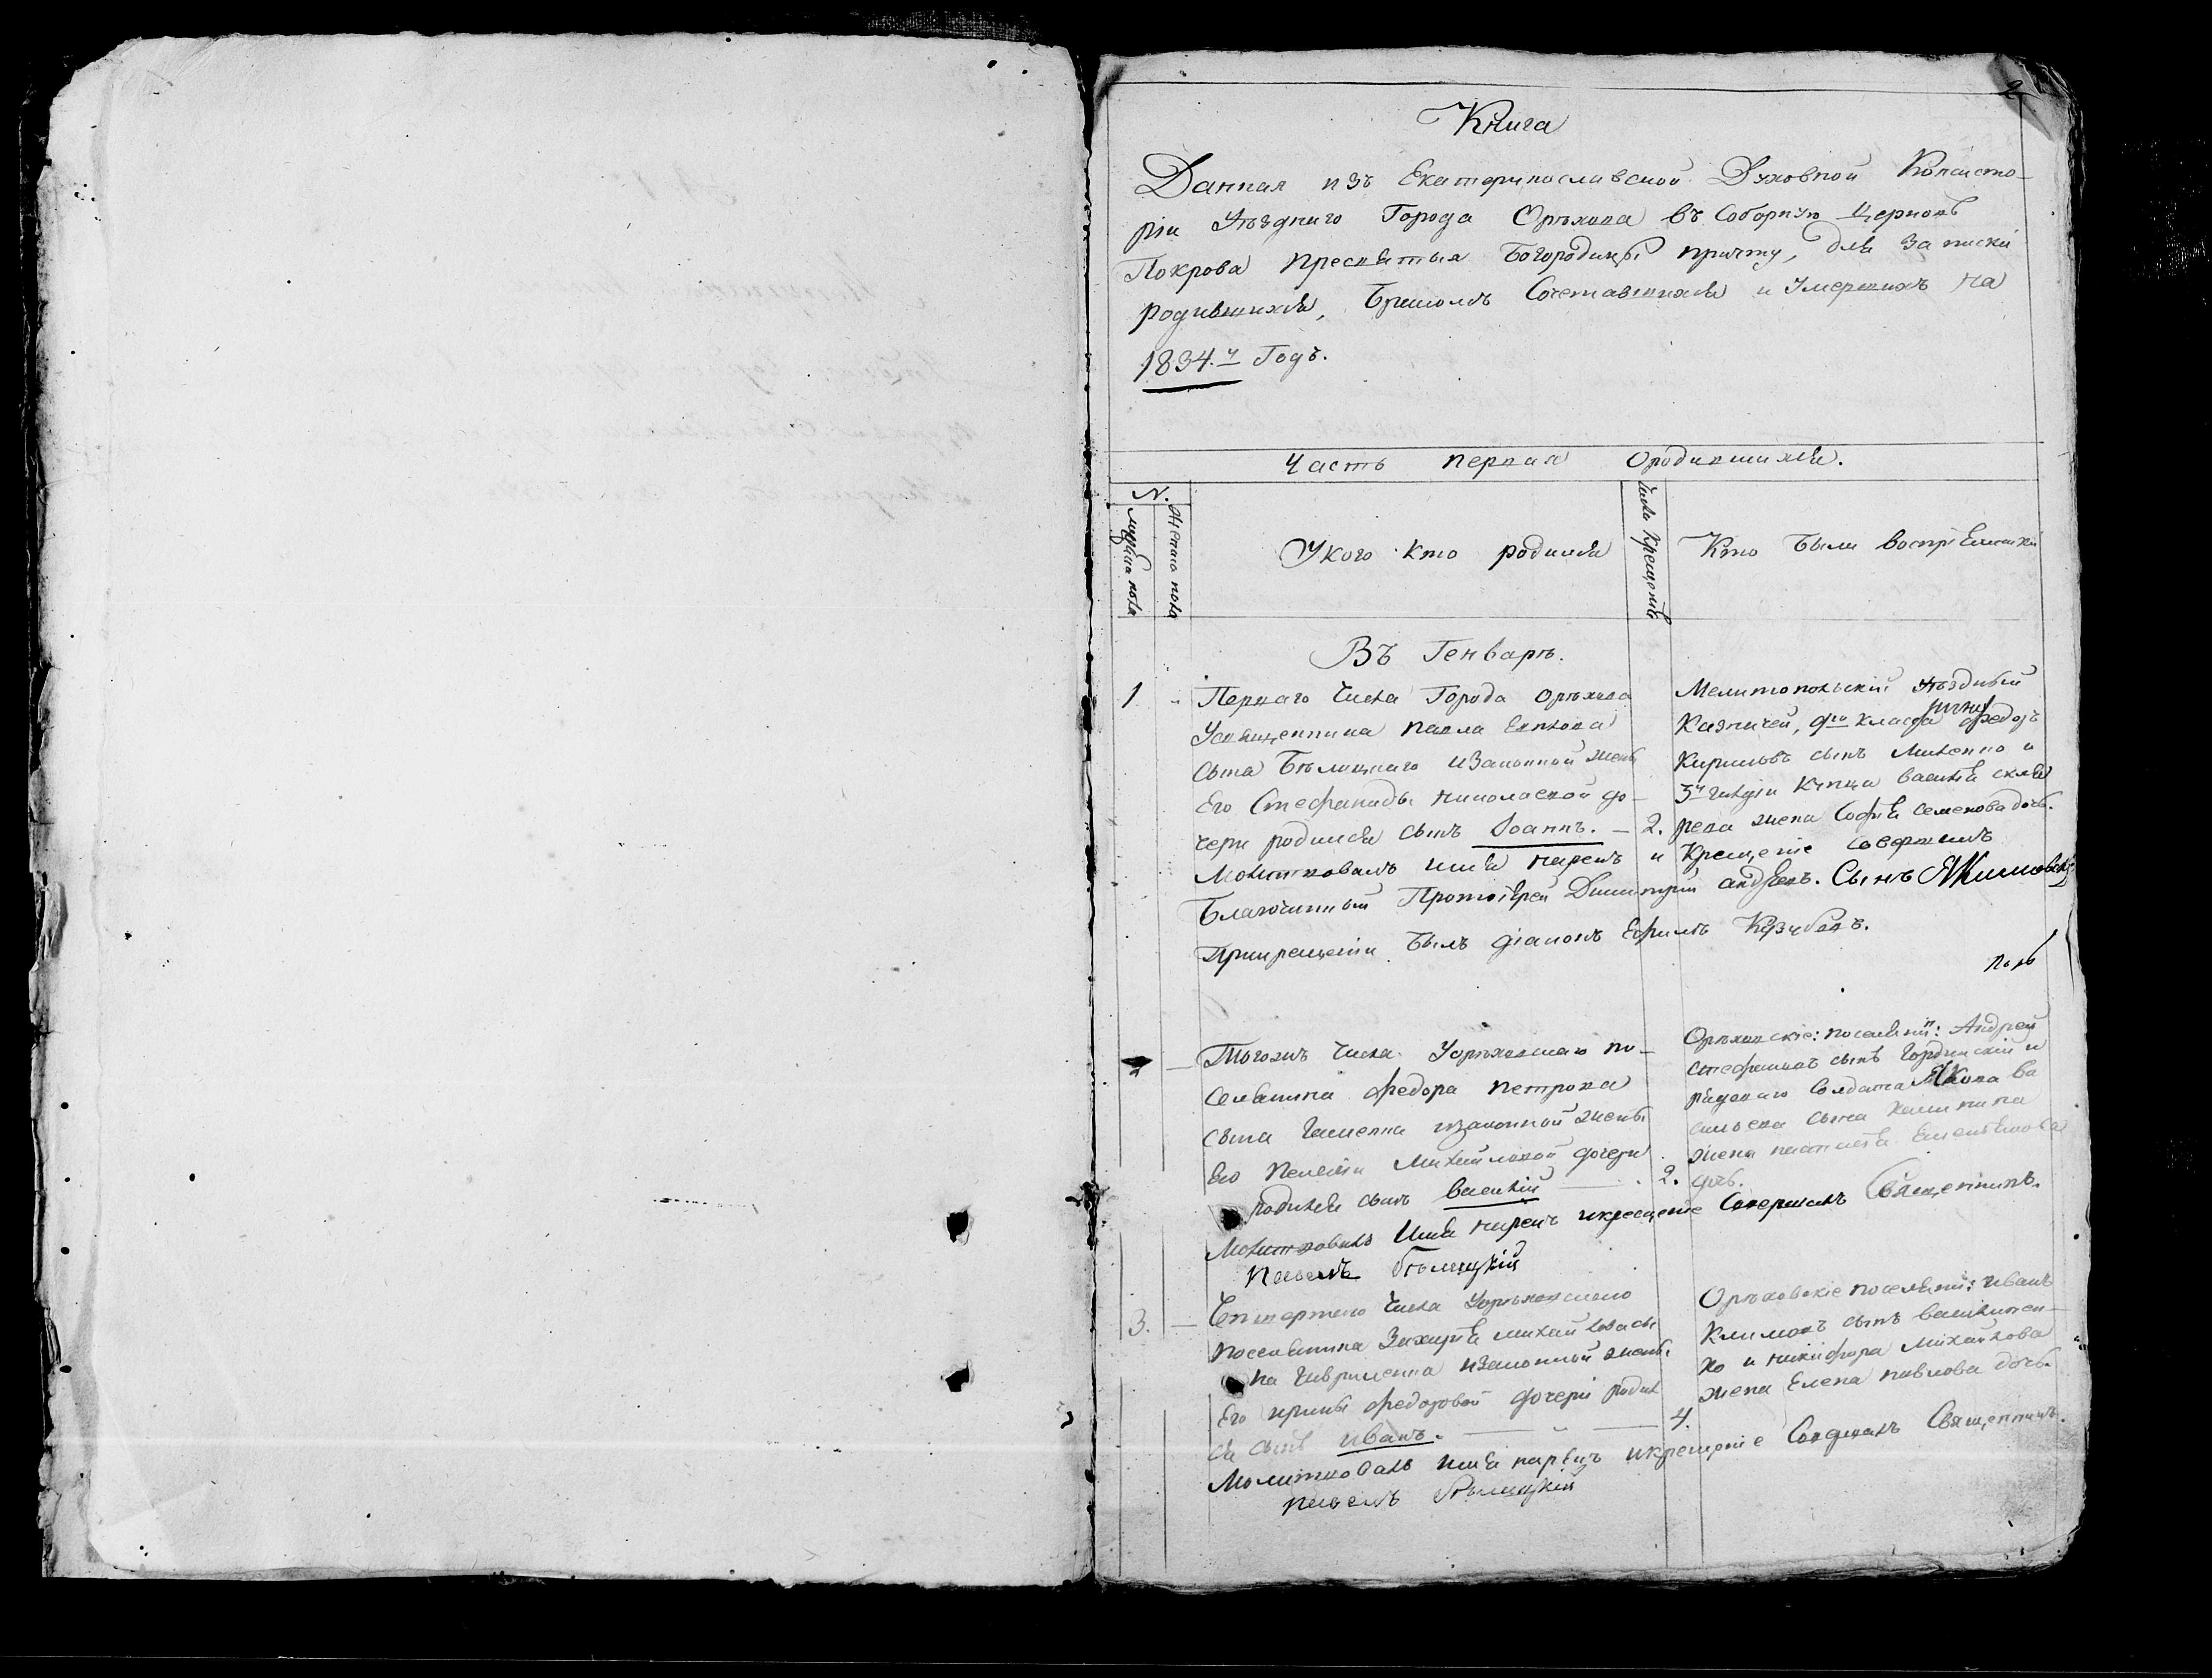 2
Книга
Данная изъ Екатеринославской Духовной Консисто-
ріи Уѣзднаго Города Орѣхова въ Соборную Церковь
Покрова Пресвятыя Богородицы причту, для записки
родившихся, бракомъ Сочетавшихся и Умершихъ на
1834.й Годъ.
Часть первая О родившихся.
N.
мужеска пола
Женска пола
У кого кто родился
Число крещенія
Кто были воспріемники
Въ Генварѣ.
1
Перваго числа Города Орѣхова
У священника Павла
сына Бѣлицкаго и законной жены
Его Стефаниды Николаевой до-
чери родился сынъ Іоаннъ. — 2.
Мелитопольскій уѣздный
Казначей, 9го класса Федоръ
Кириловъ сынъ и
3й гильдіи купца
жена Софія Семенова дочь.
Молитвовалъ имя нарекъ и крещеніе совершилъ
Благочинный Протоіерей Димитрій Андреевъ. Сынъ
При крещеніи былъ діаконъ Ефимъ
2
Того жъ числа У орѣховскаго по-
селянина Федора Петрова
сына и законной жены
Его Пелагіи Михайловой дочери
родился сынъ Василій — 2.
Орѣховскіе: поселянинъ: Андрей
Стефановъ сынъ и
рядоваго солдата Якова Ва
сильева сына Калинина
жена
дочь.
Молитвовалъ Имя нарекъ и крещеніе Совершилъ Священникъ.
Павелъ Бѣлицкій
3.
Четвертаго числа У орѣховскаго
поселянина Захарія Михайлова сы
на Гавриленка и законной жены
Его Ирины Федоровой дочери родил
ся сынъ Иванъ. — 4.
Орѣховскіе поселянинъ: Иванъ
Климовъ сынъ Василичен-
ко и Никифора Михайлова
жена Елена Павлова дочь.
Молитвовалъ имя нарекъ и крещеніе Совершалъ Священникъ.
Павелъ Бѣлицкій